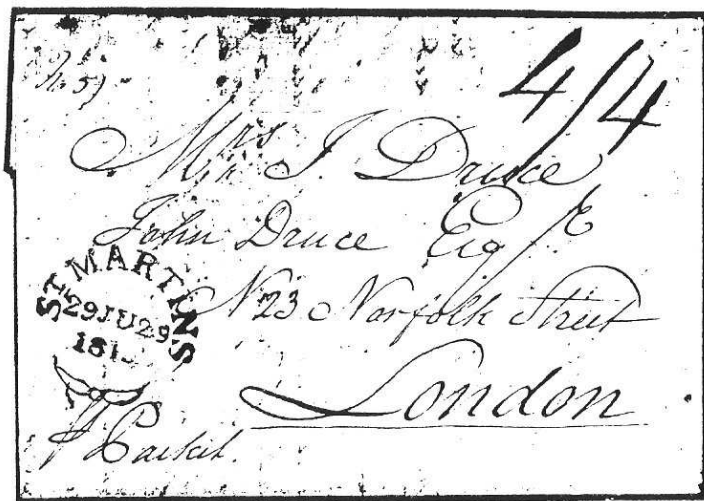 4/4
Mrs J. Druce
John Druce Esqre
N 23 Norfolk Street
London
ST MARTINS
29 JU 29
181
Packet.